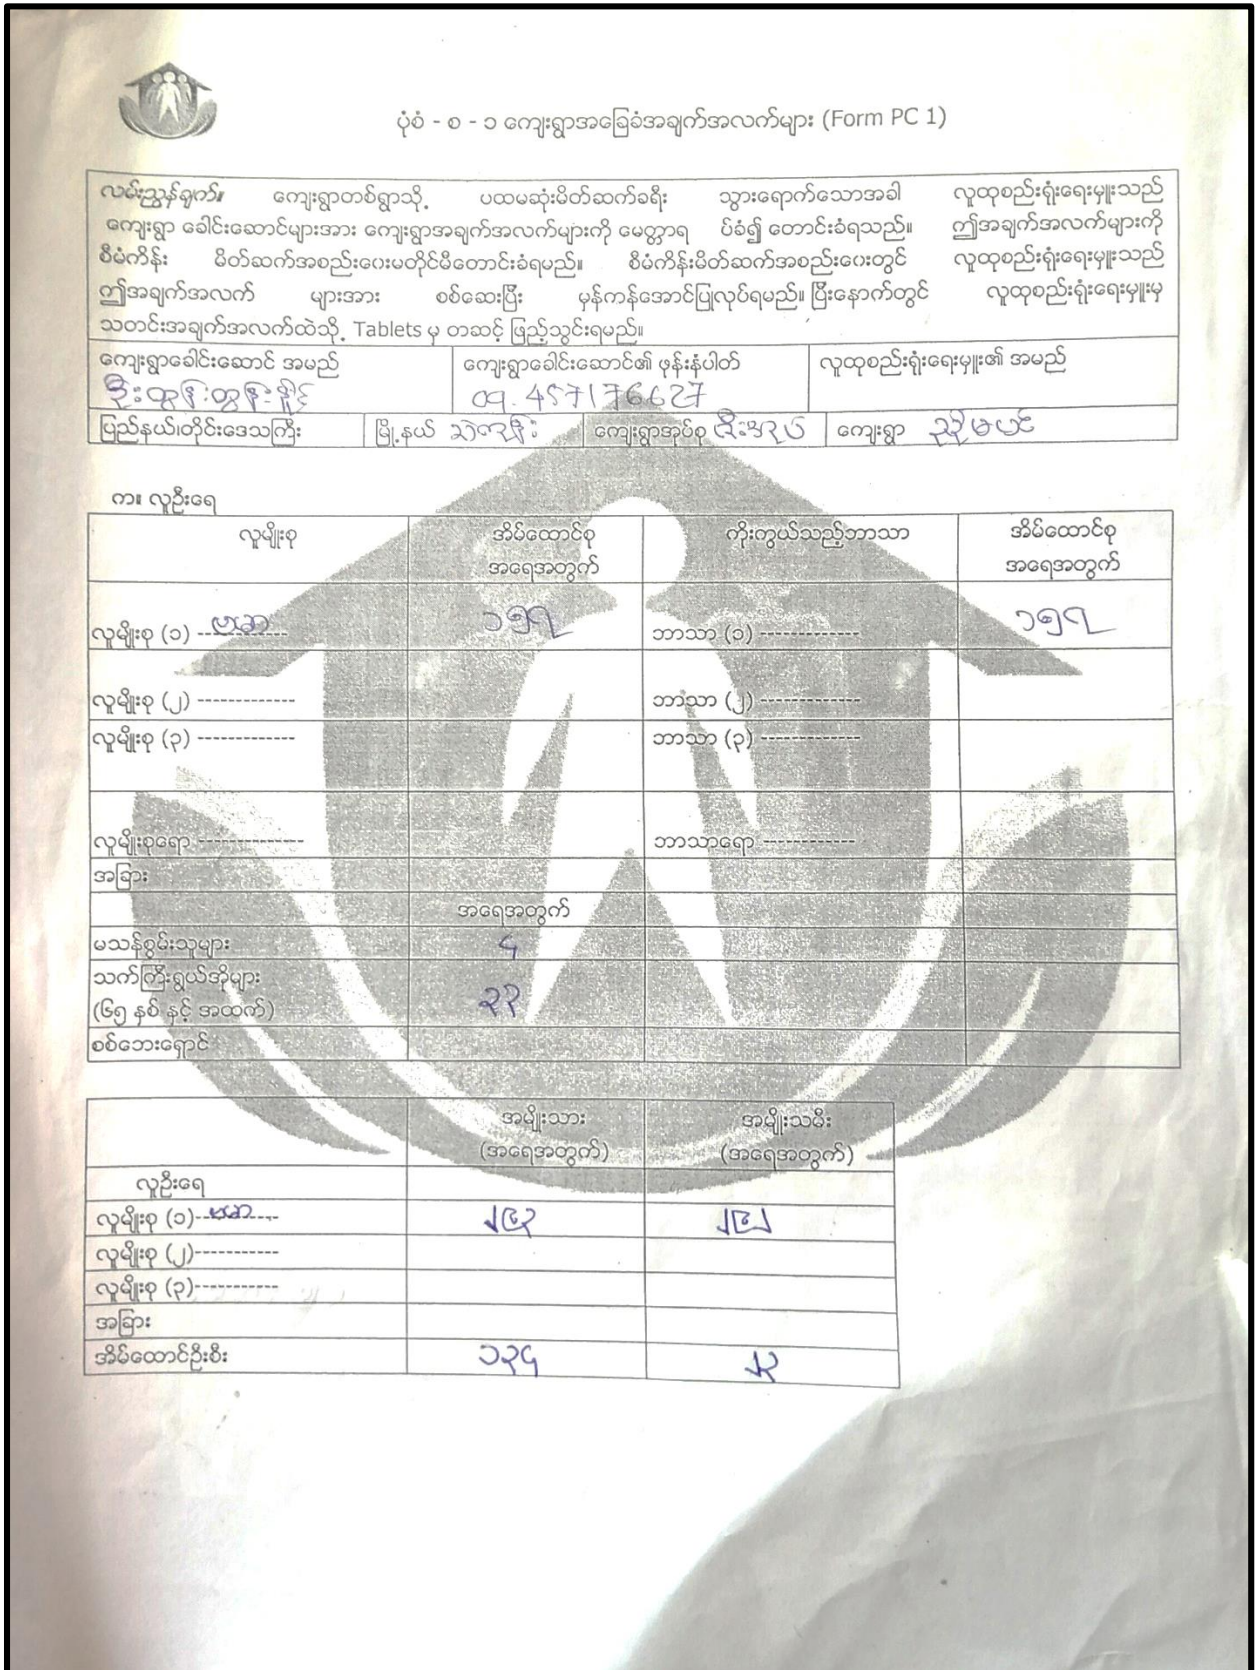 ပုံစံ - စ - ၁ ကျေးရွာအခြေခံအချက်အလက်များ (Form PC 1)
လမ်းညွှန်ချက်။ ကျေးရွာတစ်ရွာသို့ ပထမဆုံးမိတ်ဆက်ခရီး သွားရောက်သောအခါ လူထုစည်းရုံးရေးမှူးသည်
ကျေးရွာ ခေါင်းဆောင်များအား ကျေးရွာအချက်အလက်များကို မေတ္တာရ ပ်ခံ၍ တောင်းခံရသည်။ ဤအချက်အလက်များကို
စီမံကိန်း မိတ်ဆက်အစည်းဝေးမတိုင်မီတောင်းခံရမည်။ စီမံကိန်းမိတ်ဆက်အစည်းဝေးတွင် လူထုစည်းရုံးရေးမှူးသည်
ဤအချက်အလက် များအား စစ်ဆေးပြီး မှန်ကန်အောင်ပြုလုပ်ရမည်။ ပြီးနောက်တွင် လူထုစည်းရုံးရေးမှူးမှ
သတင်းအချက်အလက်ထဲသို့ Tablets မှ တဆင့် ဖြည့်သွင်းရမည်။
ကျေးရွာခေါင်းဆောင် အမည် ကျေးရွာခေါင်းဆောင်၏ ဖုန်းနံပါတ် လူထုစည်းရုံးရေးမှူး၏ အမည်
ဦးထွန်းထွန်းနိုင် 09.457176627
ပြည်နယ်၊တိုင်းဒေသကြီး မြို့နယ် သဲကုန်း ကျေးရွာအုပ်စု ဇီးအုပ် ကျေးရွာ ညိုမပင်
က။ လူဦးရေ
လူမျိုးစု အိမ်ထောင်စု ကိုးကွယ်သည့်ဘာသာ အိမ်ထောင်စု
အရေအတွက် အရေအတွက်
လူမျိုးစု (၁) ---ဗမာ--- ၁၅၇ ဘာသာ (၁) ------------- ၁၅၇
လူမျိုးစု (၂) ------------- ဘာသာ (၂) -------------
လူမျိုးစု (၃) ------------- ဘာသာ (၃) -------------
လူမျိုးစုရော -------------- ဘာသာရော ------------
အခြား
အရေအတွက်
မသန်စွမ်းသူများ ၄
သက်ကြီးရွယ်အိုများ
(၆၅ နှစ် နှင့် အထက်) ၃၃
စစ်ဘေးရှောင်
အမျိုးသား အမျိုးသမီး
(အရေအတွက်) (အရေအတွက်)
လူဦးရေ
လူမျိုးစု (၁)--ဗမာ---- ၂၆၃ ၂၆၂
လူမျိုးစု (၂)-----------
လူမျိုးစု (၃)-----------
အခြား
အိမ်ထောင်ဦးစီး ၁၃၄ ၂၃